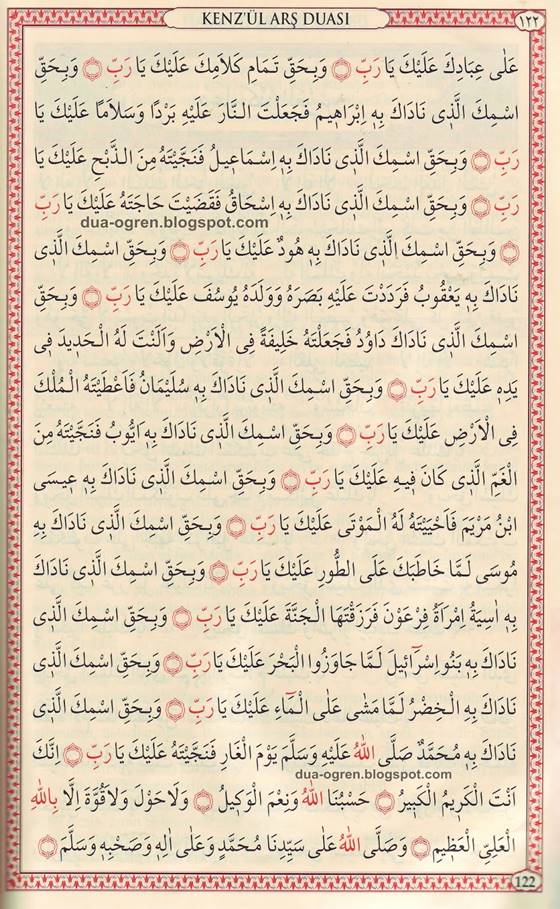 KENZ'ÜL ARŞ DUASI
١٢٢
عَلٰى عِبَادِكَ عَلَيْكَ يَا رَبِّ وَبِحَقِّ تَمَامِ كَلَامِكَ عَلَيْكَ يَا رَبِّ وَبِحَقِّ
اسْمِكَ الَّذ۪ى نَادَاكَ بِه۪ اِبْرَاه۪يمُ فَجَعَلْتَ النَّارَ عَلَيْهِ بَرْدًا وَسَلَامًا عَلَيْكَ يَا
رَبِّ وَبِحَقِّ اسْمِكَ الَّذ۪ى نَادَاكَ بِه۪ اِسْمَاع۪يلُ فَنَجَّيْتَهُ مِنَ الذَّبْحِ عَلَيْكَ يَا
رَبِّ وَبِحَقِّ اسْمِكَ الَّذ۪ى نَادَاكَ بِه۪ اِسْحَاقُ فَقَضَيْتَ حَاجَتَهُ عَلَيْكَ يَا رَبِّ
dua-ogren.blogspot.com
وَبِحَقِّ اسْمِكَ الَّذ۪ى نَادَاكَ بِه۪ هُودٌ عَلَيْكَ يَا رَبِّ وَبِحَقِّ اسْمِكَ الَّذ۪ى
نَادَاكَ بِه۪ يَعْقُوبُ فَرَدَدْتَ عَلَيْهِ بَصَرَهُ وَوَلَدَهُ يُوسُفَ عَلَيْكَ يَا رَبِّ وَبِحَقِّ
اسْمِكَ الَّذ۪ى نَادَاكَ دَاوُدُ فَجَعَلْتَهُ خَل۪يفَةً فِى الْاَرْضِ وَاَلَنْتَ لَهُ الْحَد۪يدَ ف۪ى
يَدِه۪ عَلَيْكَ يَا رَبِّ وَبِحَقِّ اسْمِكَ الَّذ۪ى نَادَاكَ بِه۪ سُلَيْمَانُ فَاَعْطَيْتَهُ الْمُلْكَ
فِى الْاَرْضِ عَلَيْكَ يَا رَبِّ وَبِحَقِّ اسْمِكَ الَّذ۪ى نَادَاكَ بِه۪ اَيُّوبُ فَنَجَّيْتَهُ مِنَ
الْغَمِّ الَّذ۪ى كَانَ ف۪يهِ عَلَيْكَ يَا رَبِّ وَبِحَقِّ اسْمِكَ الَّذ۪ى نَادَاكَ بِه۪ ع۪يسَى
ابْنُ مَرْيَمَ فَاَحْيَيْتَهُ لَهُ الْمَوْتَى عَلَيْكَ يَا رَبِّ وَبِحَقِّ اسْمِكَ الَّذ۪ى نَادَاكَ بِه۪
مُوسَى لَمَّا خَاطَبَكَ عَلَى الطُّورِ عَلَيْكَ يَا رَبِّ وَبِحَقِّ اسْمِكَ الَّذ۪ى نَادَاكَ
بِه۪ اٰسِيَةُ اِمْرَاَةُ فِرْعَوْنَ فَرَزَقْتَهَا الْجَنَّةَ عَلَيْكَ يَا رَبِّ وَبِحَقِّ اسْمِكَ الَّذ۪ى
نَادَاكَ بِه۪ بَنُو اِسْرَٓائ۪يلَ لَمَّا جَاوَزُوا الْبَحْرَ عَلَيْكَ يَا رَبِّ وَبِحَقِّ اسْمِكَ الَّذ۪ى
نَادَاكَ بِهِ الْخِضْرُ لَمَّا مَشٰى عَلَى الْمَٓاءِ عَلَيْكَ يَا رَبِّ وَبِحَقِّ اسْمِكَ الَّذ۪ى
نَادَاكَ بِه۪ مُحَمَّدٌ صَلَّى اللهُ عَلَيْهِ وَسَلَّمَ يَوْمَ الْغَارِ فَنَجَّيْتَهُ عَلَيْكَ يَا رَبِّ اِنَّكَ
dua-ogren.blogspot.com
اَنْتَ الْكَر۪يمُ الْكَب۪يرُ حَسْبُنَا اللهُ وَنِعْمَ الْوَك۪يلُ وَلَا حَوْلَ وَلَا قُوَّةَ اِلَّا بِاللهِ
الْعَلِىِّ الْعَظ۪يمِ وَصَلَّى اللهُ عَلٰى سَيِّدِنَا مُحَمَّدٍ وَعَلٰى اٰلِه۪ وَصَحْبِه۪ وَسَلَّمَ
122